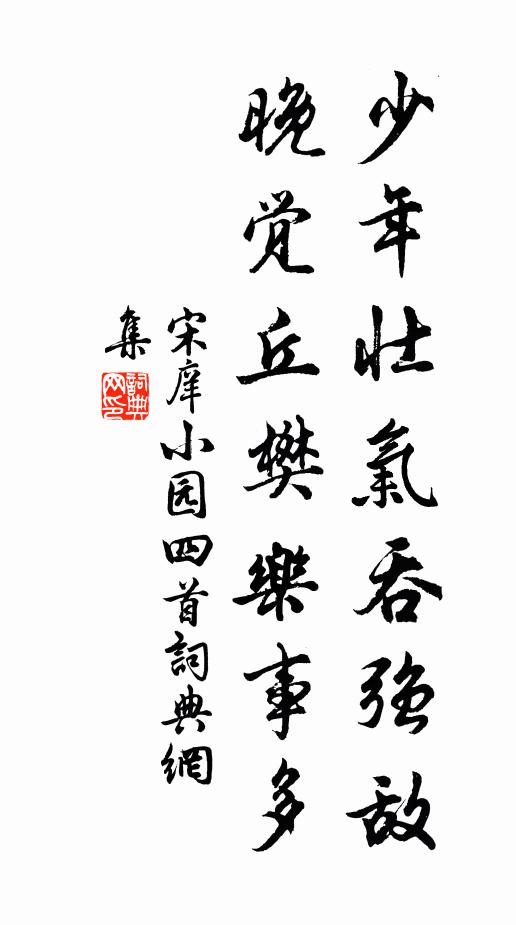 少年壮氣吞强敌
晚觉丘樊樂事多
宋庠小园四首詞典網
集
詞典网印